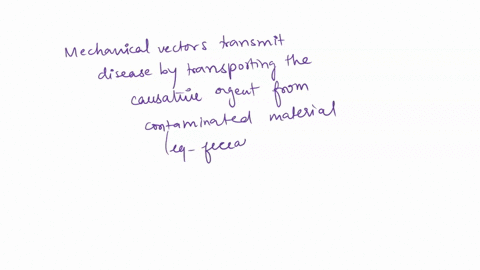 Mechanical vectors transmit
disease by transporting the
causative agent from
contaminated material
(eg- fecea